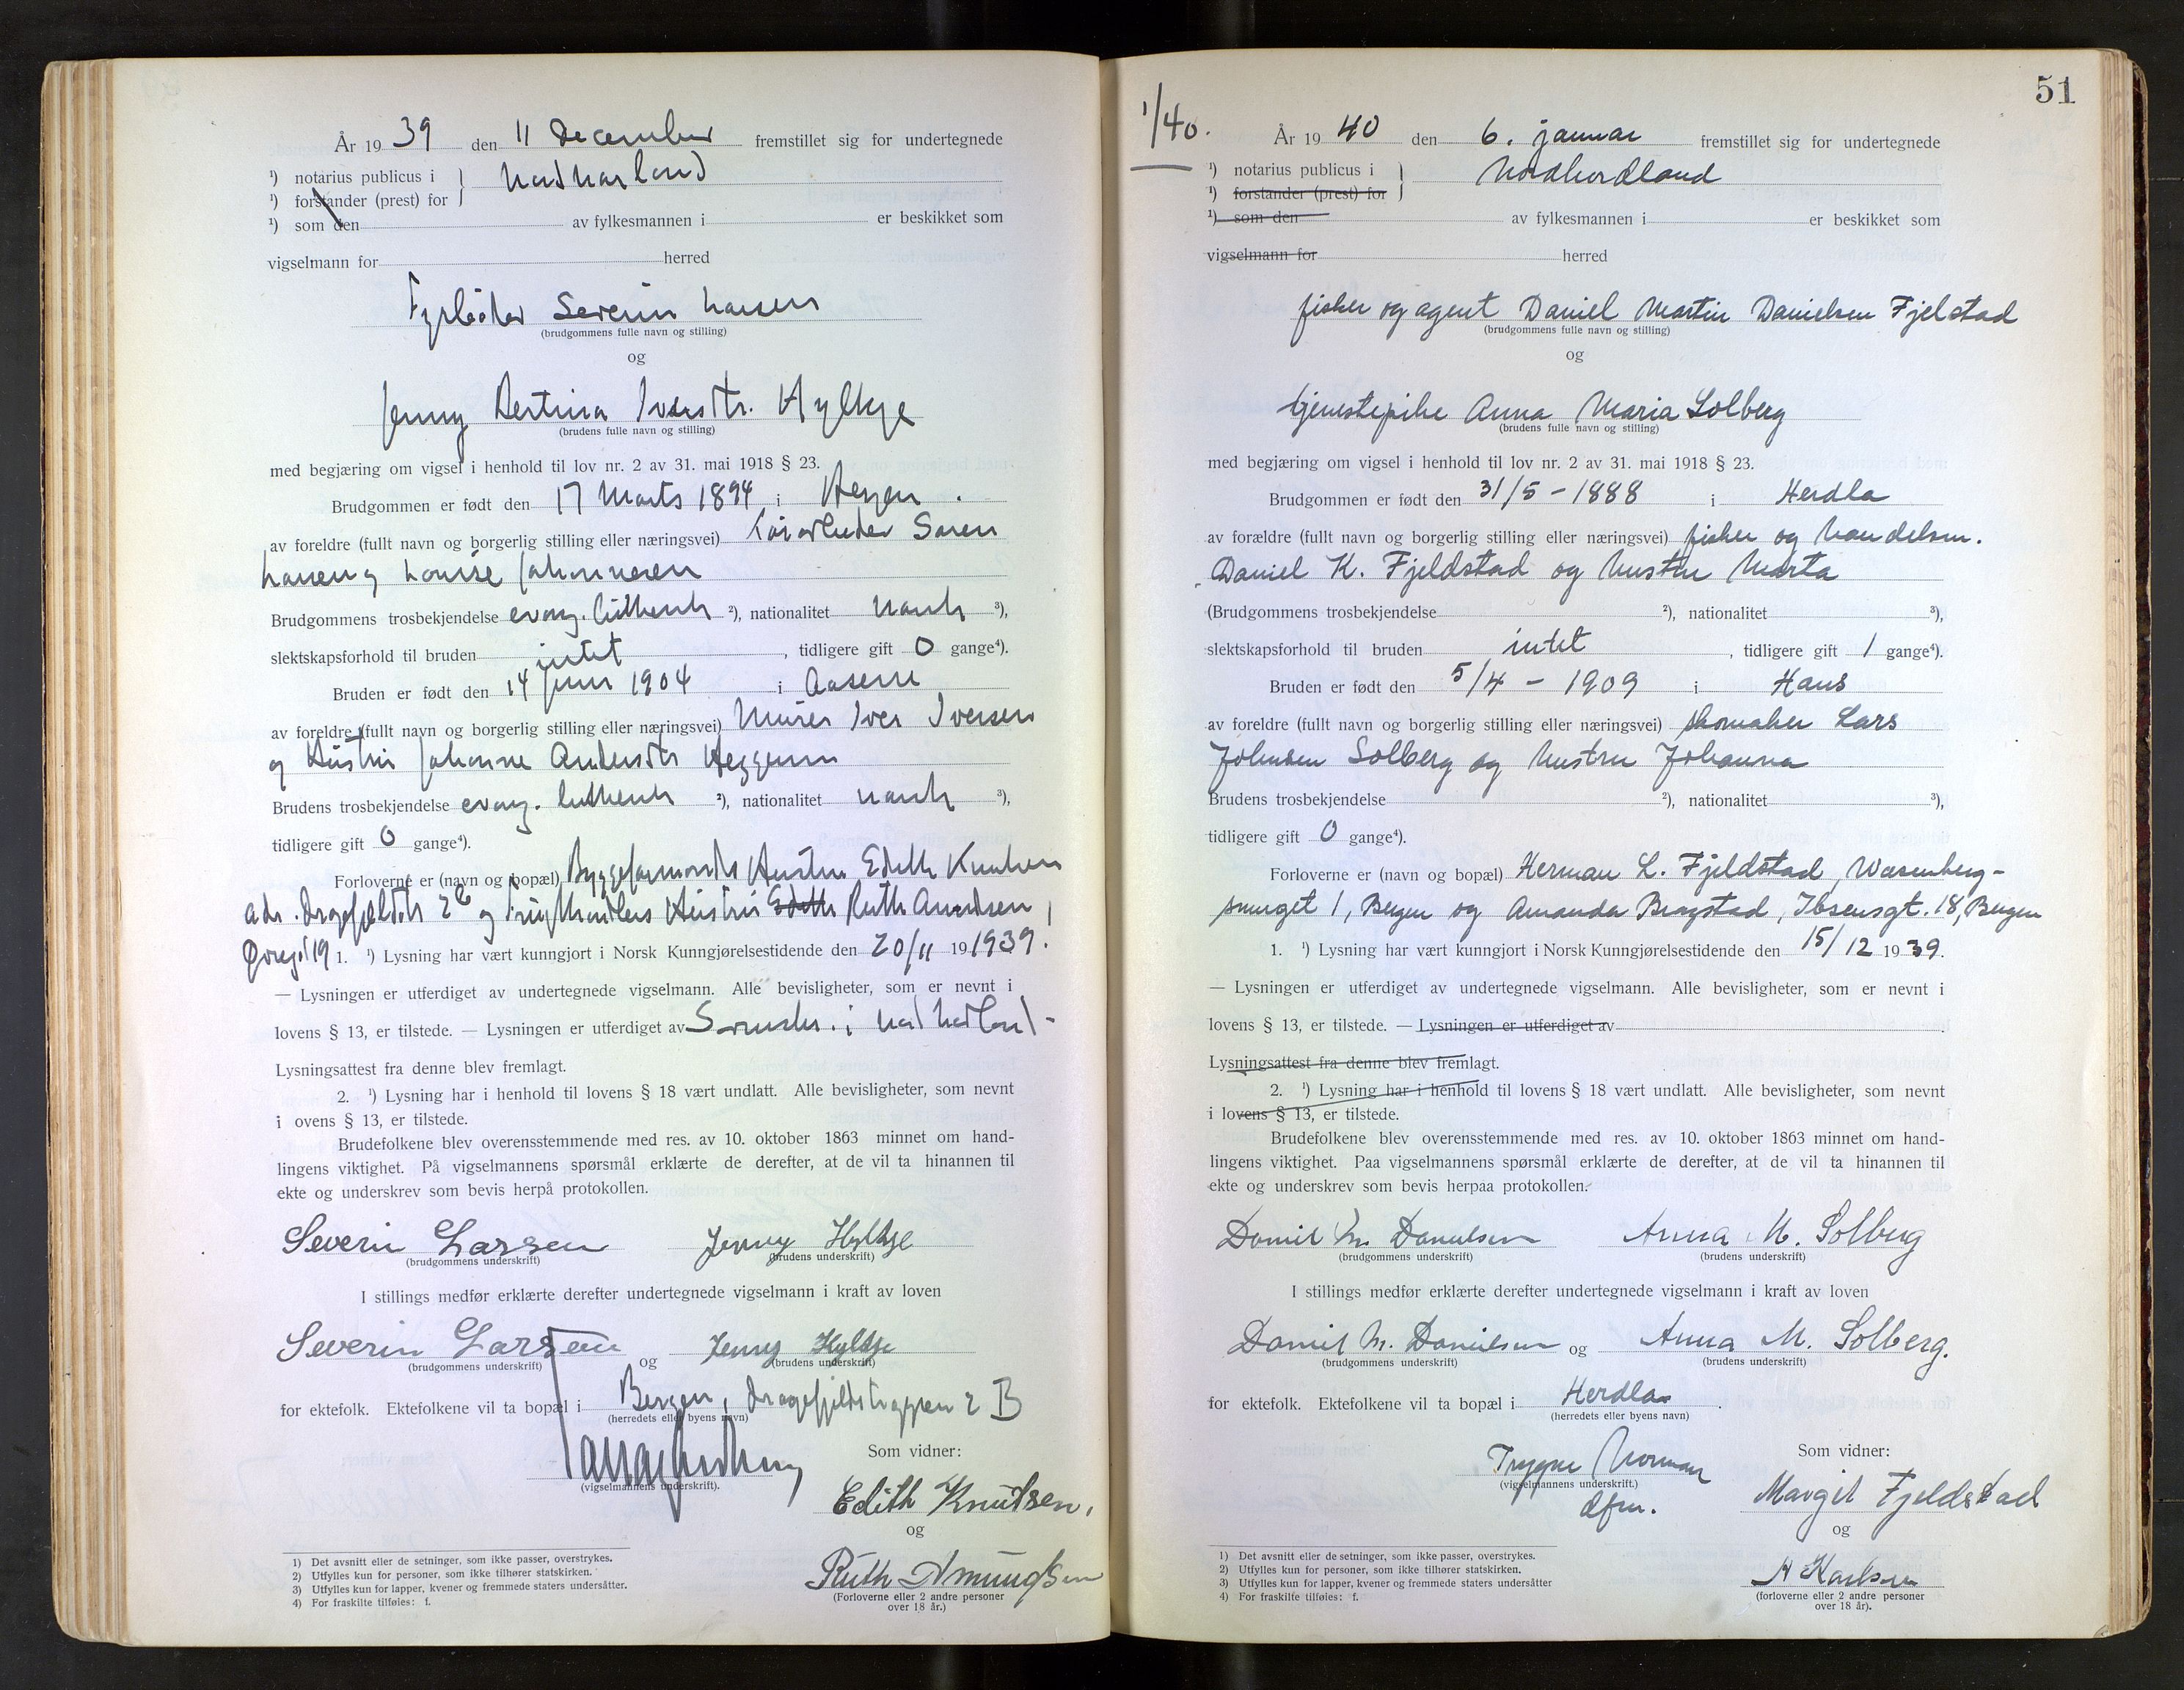 År 19 39 den 11 December fremstillet sig for undertegnede
¹) notarius publicus i } Nordhordland
¹) forstander (prest) for
¹) som den av fylkesmannen i er beskikket som
vigselmann for herred
Fyrbøder Severin Larsen
(brudgommens fulle navn og stilling)
og
Jenny Bertina Iversdtr. Hylkje
(brudens fulle navn og stilling)
med begjæring om vigsel i henhold til lov nr. 2 av 31. mai 1918 § 23.
Brudgommen er født den 17 Marts 1894 i Bergen.
av foreldre (fullt navn og borgerlig stilling eller næringsvei) Søren
Larsen og Lovise Johannesen
Brudgommens trosbekjendelse evang. luthersk ²), nationalitet norsk ³),
slektskapsforhold til bruden intet, tidligere gift 0 gange⁴).
Bruden er født den 14 juni 1904 i Aasene
av foreldre (fullt navn og borgerlig stilling eller næringsvei) Murer Iver Iversen
og Hustru Johanne Andersdtr Heggernes
Brudens trosbekjendelse evang. luthersk ²), nationalitet norsk ³),
tidligere gift 0 gange⁴).
Forloverne er (navn og bopæl) Hustru Edith Knutsen
adr. og Hustru Edith Ruth
19
1. ¹) Lysning har vært kunngjort i Norsk Kunngjørelsestidende den 20/11 19 1939.
— Lysningen er utferdiget av undertegnede vigselmann. Alle bevisligheter, som er nevnt i
lovens § 13, er tilstede. — Lysningen er utferdiget av Sorenskr. i Nordhordland -
Lysningsattest fra denne blev fremlagt.
2. ¹) Lysning har i henhold til lovens § 18 vært undlatt. Alle bevisligheter, som nevnt
i ovens § 13, er tilstede.
Brudefolkene blev overensstemmende med res. av 10. oktober 1863 minnet om hand-
lingens viktighet. På vigselmannens spørsmål erklærte de derefter, at de vil ta hinannen til
ekte og underskrev som bevis herpå protokollen.
Severin Larsen Jenny Hylkje
(brudgommens underskrift) (brudens underskrift)
I stillings medfør erklærte derefter undertegnede vigselmann i kraft av loven
Severin Larsen og Jenny Hylkje
(brudgommens underskrift) (brudens underskrift)
for ektefolk. Ektefolkene vil ta bopæl i Bergen, Dragefjeldstrappen 2 B
(herredets eller byens navn)
Som vidner:
(vigselmannens underskrift).
Edith Knutsen,
og
Ruth Amundsen
(Forloverne eller 2 andre personer
over 18 år.)
1) Det avsnitt eller de setninger, som ikke passer, overstrykes.
2) Utfylles kun for personer, som ikke tilhører statskirken.
3) Utfylles kun for lapper, kvener og fremmede staters undersåtter.
4) For fraskilte tilføies: f.
51
1/40.
År 19 40 den 6. januar fremstillet sig for undertegnede
¹) notarius publicus i } Nordhordland
¹) forstander (prest) for
¹) som den av fylkesmannen i er beskikket som
vigselmann for herred
fisker og agent Daniel Martin Danielsen Fjelstad
(brudgommens fulle navn og stilling)
og
tjenestepike Anna Maria Solberg
(brudens fulle navn og stilling)
med begjæring om vigsel i henhold til lov nr. 2 av 31. mai 1918 § 23.
Brudgommen er født den 31/5 - 1888 i Herdla
av forældre (fullt navn og borgerlig stilling eller næringsvei) fisker og handelsm.
Daniel K. Fjeldstad og hustru Marta
(Brudgommens trosbekjendelse ²), nationalitet ³),
slektskapsforhold til bruden intet, tidligere gift 1 gange⁴).
Bruden er født den 5/4 - 1909 i Haus
av foreldre (fullt navn og borgerlig stilling eller næringsvei) skomaker Lars
Johnsen Solberg og hustru Johanna
Brudens trosbekjendelse ²), nationalitet ³),
tidligere gift 0 gange⁴).
Forloverne er (navn og bopæl) Herman L. Fjeldstad, Wesenberg-
smuget 1, Bergen og Amanda Bragstad, Ibsensgt. 18, Bergen
1. ¹) Lysning har vært kunngjort i Norsk Kunngjørelsestidende den 15/12 19 39.
— Lysningen er utferdiget av undertegnede vigselmann. Alle bevisligheter, som er nevnt i
lovens § 13, er tilstede. — Lysningen er utferdiget av
Lysningsattest fra denne blev fremlagt.
2. ¹) Lysning har i henhold til lovens § 18 vært undlatt. Alle bevisligheter, som nevnt
i lovens § 13, er tilstede.
Brudefolkene blev overensstemmende med res. av 10. oktober 1863 minnet om hand-
lingens viktighet. Paa vigselmannens spørsmål erklærte de derefter, at de vil ta hinannen til
ekte og underskrev som bevis herpaa protokollen.
Daniel M. Danielsen Anna M. Solberg
(brudgommens underskrift) (brudens underskrift)
I stillings medfør erklærte derefter undertegnede vigselmann i kraft av loven
Daniel M. Danielsen og Anna M. Solberg.
(brudgommens underskrift) (brudens underskrift)
for ektefolk. Ektefolkene vil ta bopæl i Herdla.
(herredets eller byens navn)
Trygve Norman Som vidner:
(vigselmannens underskrift.)
dfm.
Margit Fjeldstad
og
A Karlsen
(forloverne eller 2 andre personer
over 18 år).
1) Det avsnitt eller de setninger, som ikke passer, overstrykes.
2) Utfylles kun for personer, som ikke tilhører statskirken.
3) Utfylles kun for lapper, kvener og fremmede staters undersåtter
4) For fraskilte tilføies: f.